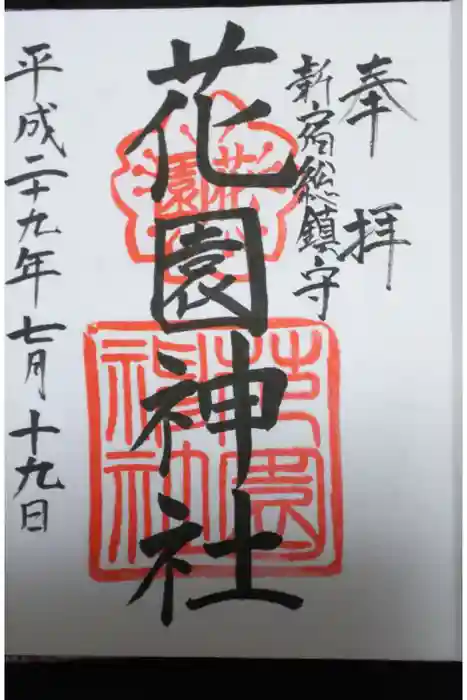 奉拝
新宿総鎮守
花園神社
花園
花園神社
平成二十九年七月十九日